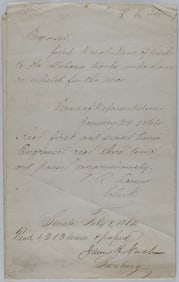 Engrossed
Joint Resolutions of thanks
to the Alabama troops who have
re-enlisted for the war
House of Representatives
January 29 1864
Read first and second times
Engrossed read third time
and passed unanimously.
Clerk
Senate Feby 1, 1864
Read 1, 2 & 3 times & passed
Secretary